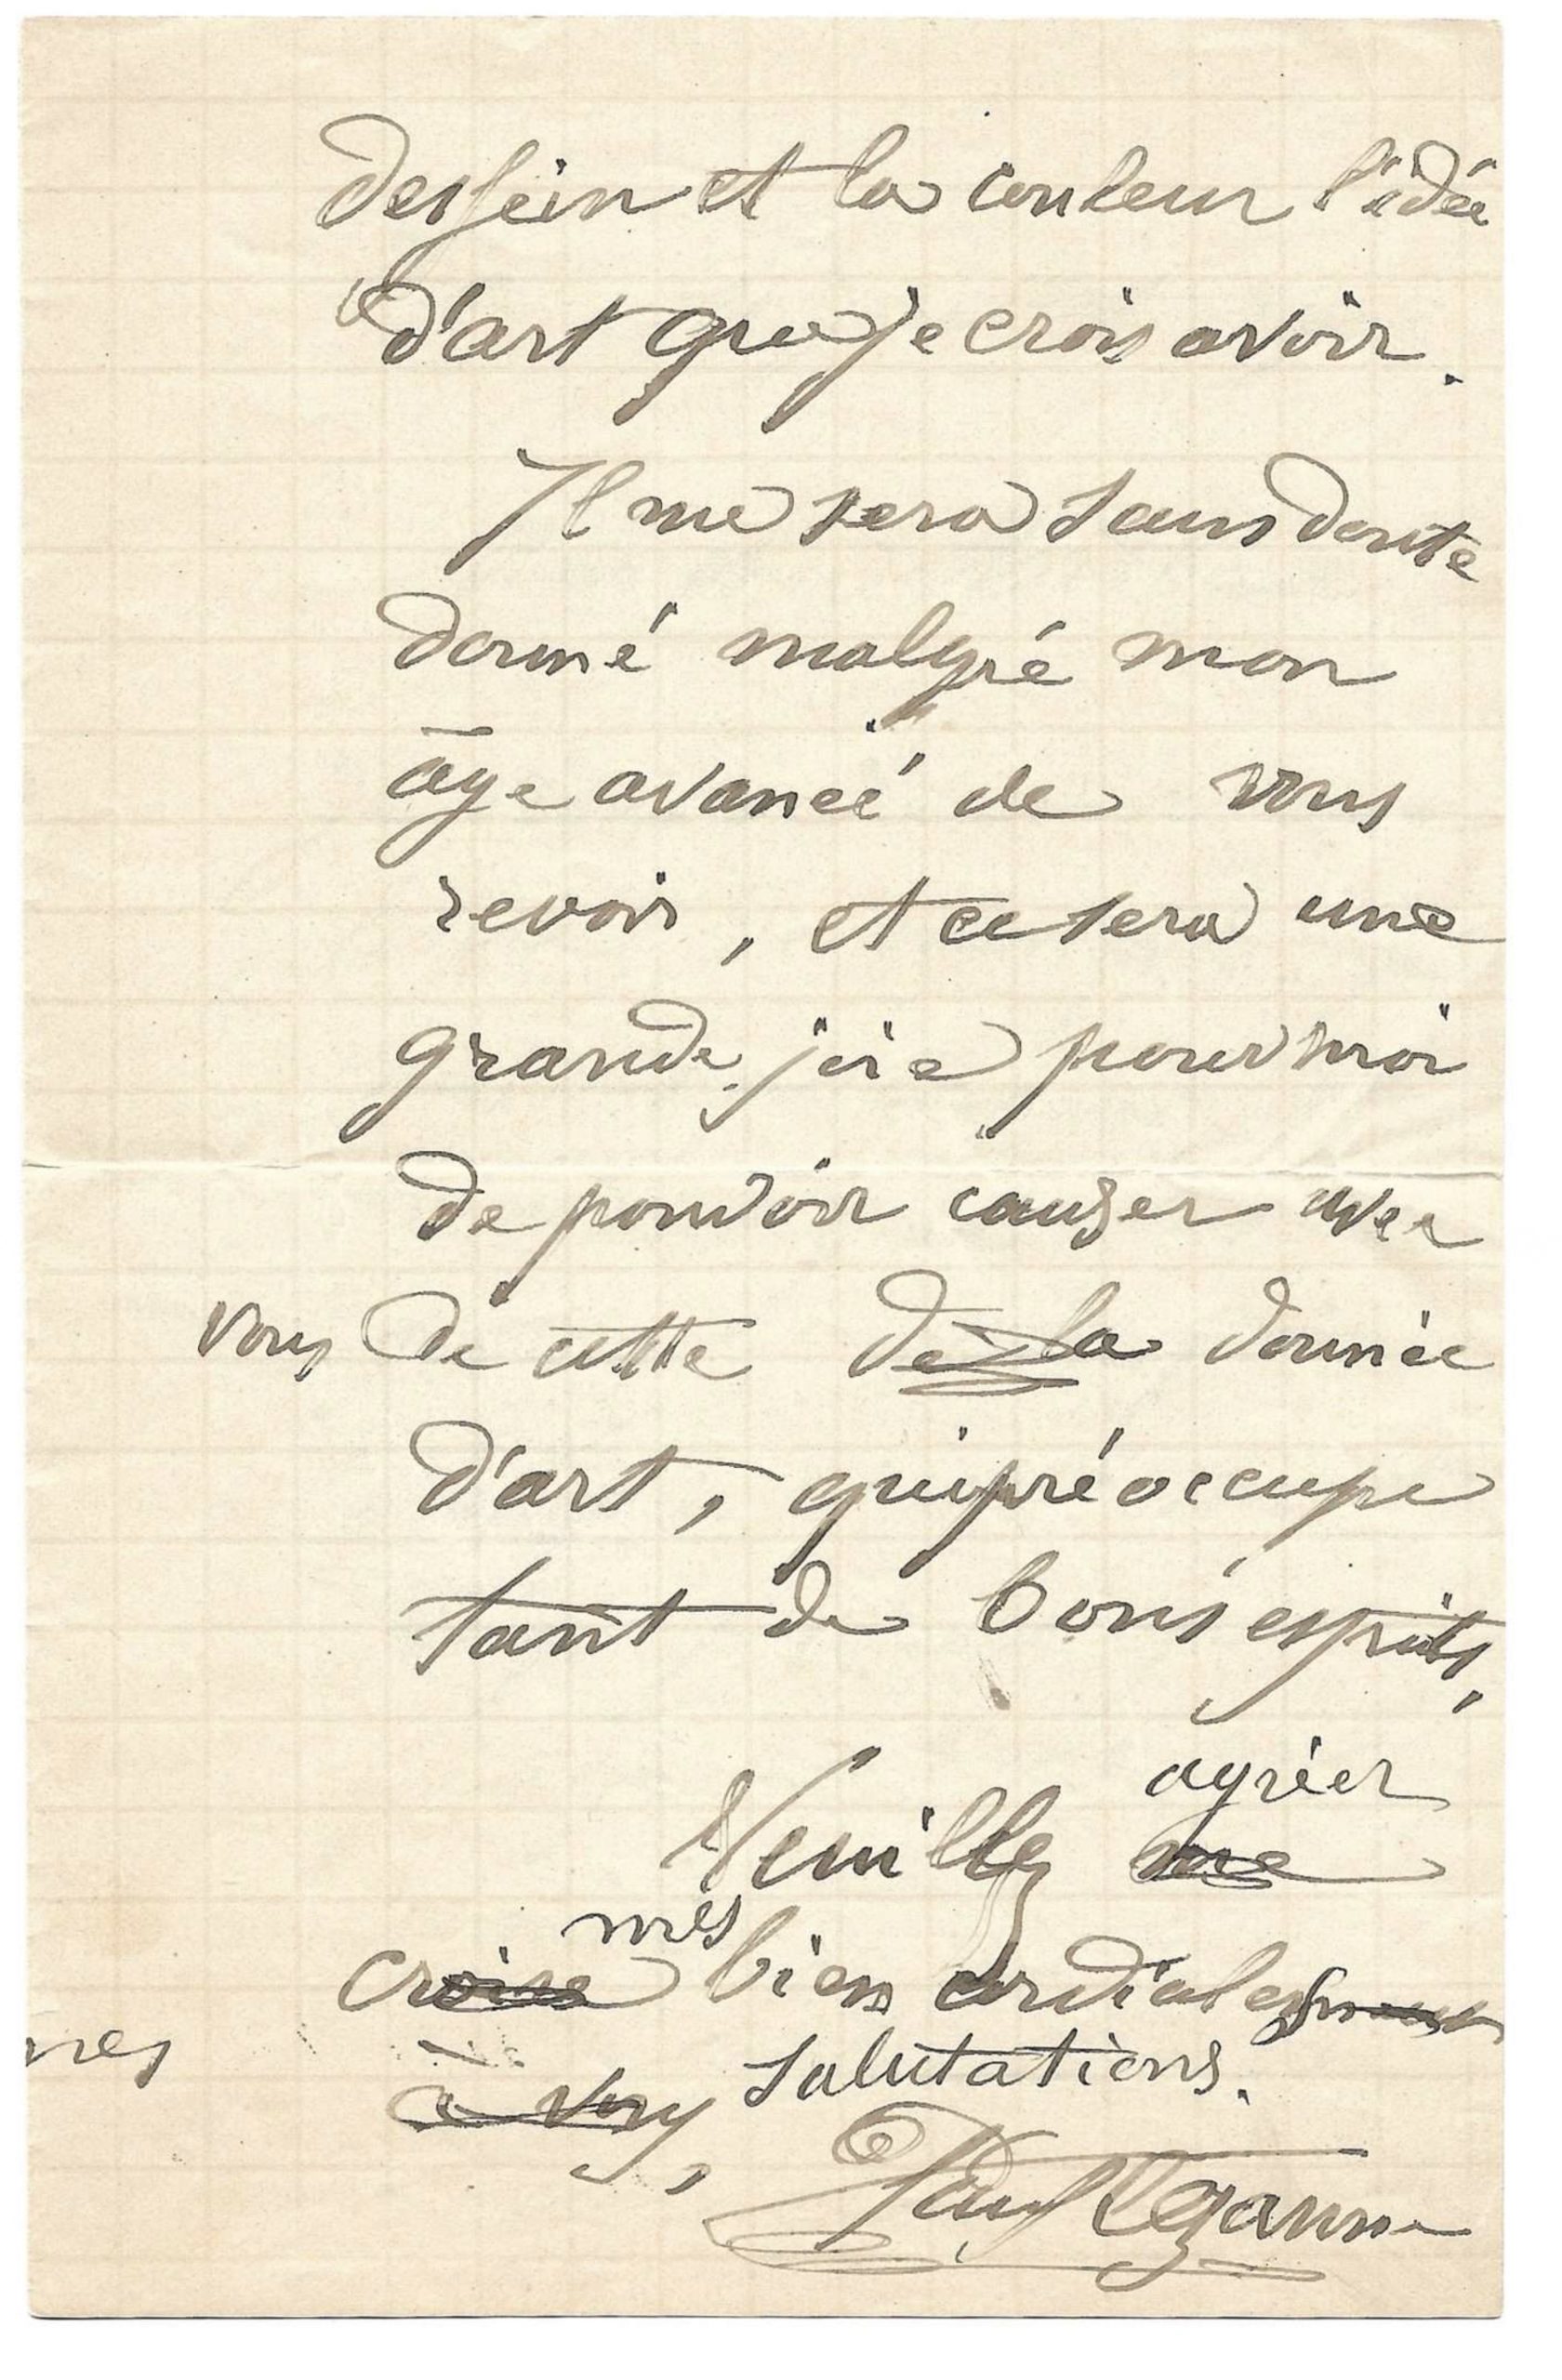 dessein et la couleur l'idée
d'art que je crois avoir.
Il me sera sans doute
donné malgré mon
âge avancé de vous
revoir, et ce sera une
grande joie pour moi
de pouvoir causer avec
vous de cette de la donnée
d'art, qui préoccupe
tant de bons esprits,
agréer
Veuillez me
mes
croire bien cordialesment
nes
à vous, salutations.
Paul Cezanne